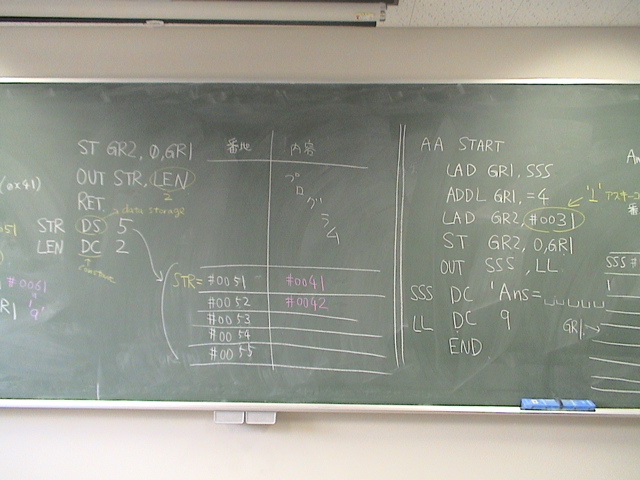 (0x41)
#0061
'a'
ST GR2, 0,GR1
OUT STR, LEN
2
RET
data storage
STR DS 5
LEN DC 2
番地 内容
プログラム
STR= #0051 #0041
#0052 #0042
#0053
#0054
#0055
AA START
LAD GR1, SSS
ADDL GR1, =4
LAD GR2, #0031
'1'
ST GR2, 0,GR1
OUT SSS ,LL
SSS DC 'Ans=␣␣␣␣␣
LL DC 9
END
SSS
GR1